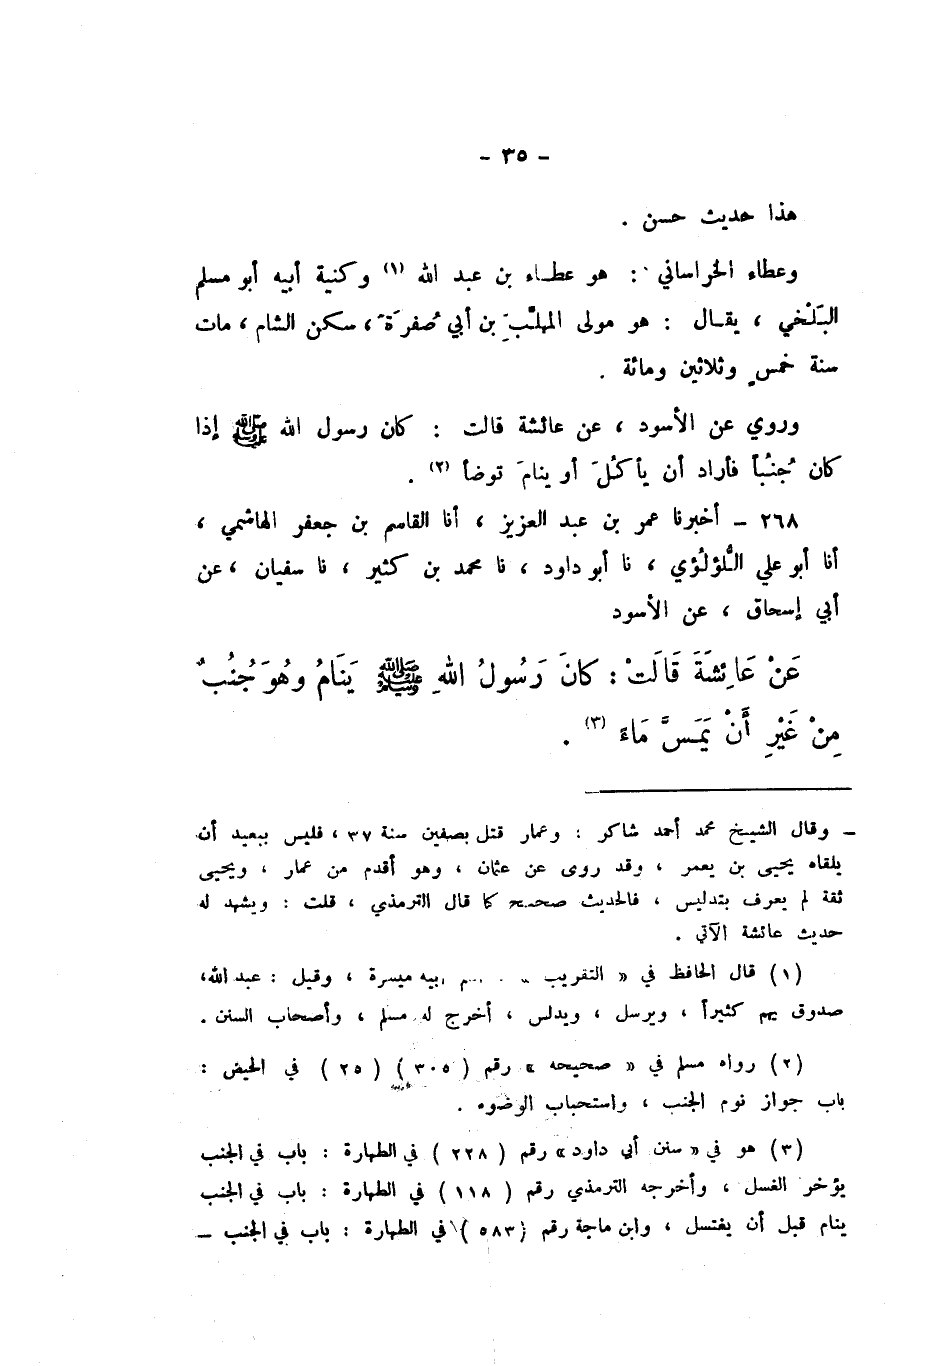 - ٣٥ -
هذا حديث حسن .
وعطاء الخراساني : هو عطاء بن عبد الله (١) وكنية أبيه أبو مسلم
البَلْخي ، يقال : هو مولى المهلَّبِ بن أبي صُفرَةَ ، سكن الشام ، مات
سنة خمسٍ وثلاثين ومائة .
وروي عن الأسود ، عن عائشة قالت : كان رسول الله ﷺ إذا
كان جُنُباً فأراد أن يأكلَ أو ينامَ توضأ (٢) .
٢٦٨ - أخبرنا عمر بن عبد العزيز ، أنا القاسم بن جعفر الهاشمي ،
أنا أبو علي اللُّؤلُؤي ، نا أبو داود ، نا محمد بن كثير ، نا سفيان ، عن
أبي إسحاق ، عن الأسود
عَنْ عَائِشَةَ قَالَتْ : كانَ رَسُولُ اللهِ ﷺ يَنَامُ وهُوَ جُنُبٌ
مِنْ غَيْرِ أَنْ يَمَسَّ مَاءً (٣) .
- وقال الشيخ محمد أحمد شاكر : وعمار قتل بصفين سنة ٣٧ ، فليس ببعيد أن
يلقاه يحيى بن يعمر ، وقد روى عن عثمان ، وهو أقدم من عمار ، ويحيى
ثقة لم يعرف بتدليس ، فالحديث صحيح كما قال الترمذي ، قلت : ويشهد له
حديث عائشة الآتي .
(١) قال الحافظ في « التقريب ميسرة ، وقيل : عبد الله،
صدوق يهم كثيراً ، ويرسل ، ويدلس ، أخرج له مسلم ، وأصحاب السنن .
(٢) رواه مسلم في « صحيحه » رقم ( ٣٠٥ ) ( ٢٥ ) في الحيض :
باب جواز نوم الجنب ، واستحباب الوضوء .
(٣) هو في « سنن أبي داود » رقم ( ٢٢٨ ) في الطهارة : باب في الجنب
يؤخر الغسل ، وأخرجه الترمذي رقم ( ١١٨ ) في الطهارة : باب في الجنب
ينام قبل أن يغتسل ، وابن ماجة رقم ( ٥٨٣ ) في الطهارة : باب في الجنب -